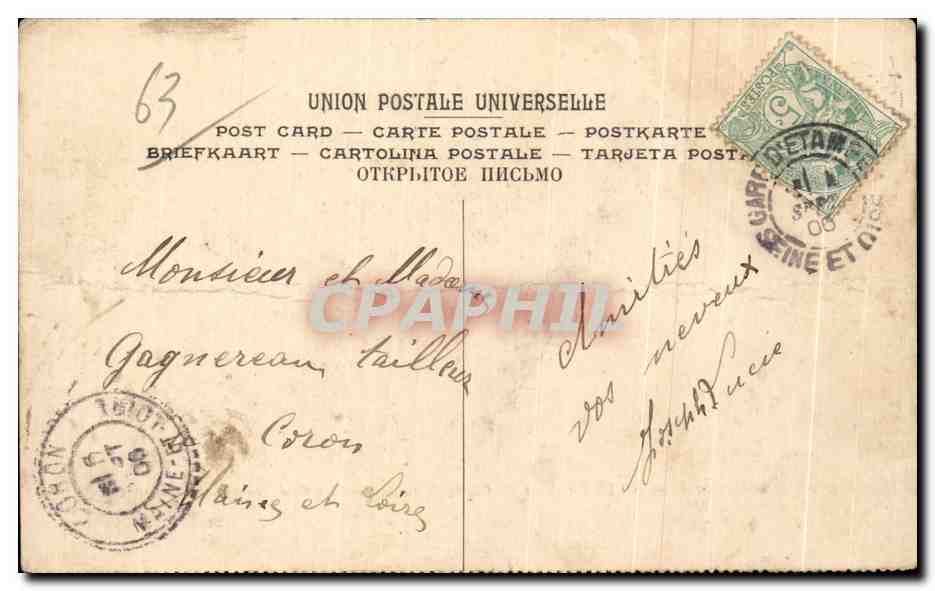 63
UNION POSTALE UNIVERSELLE
POST CARD — CARTE POSTALE — POSTKARTE
BRIEFKAART — CARTOLINA POSTALE — TARJETA POSTA
ОТКРЫТОЕ ПИСЬМО
POSTES
5
GARE D'ETAMPES
SEPT
06
SEINE ET OISE
Monsieur et Madame
Gagnereau tailleur
Coron
Maine et Loire
Amitiés
vos neveux
Joseph Lucie
CORON
06
CPAPHIL